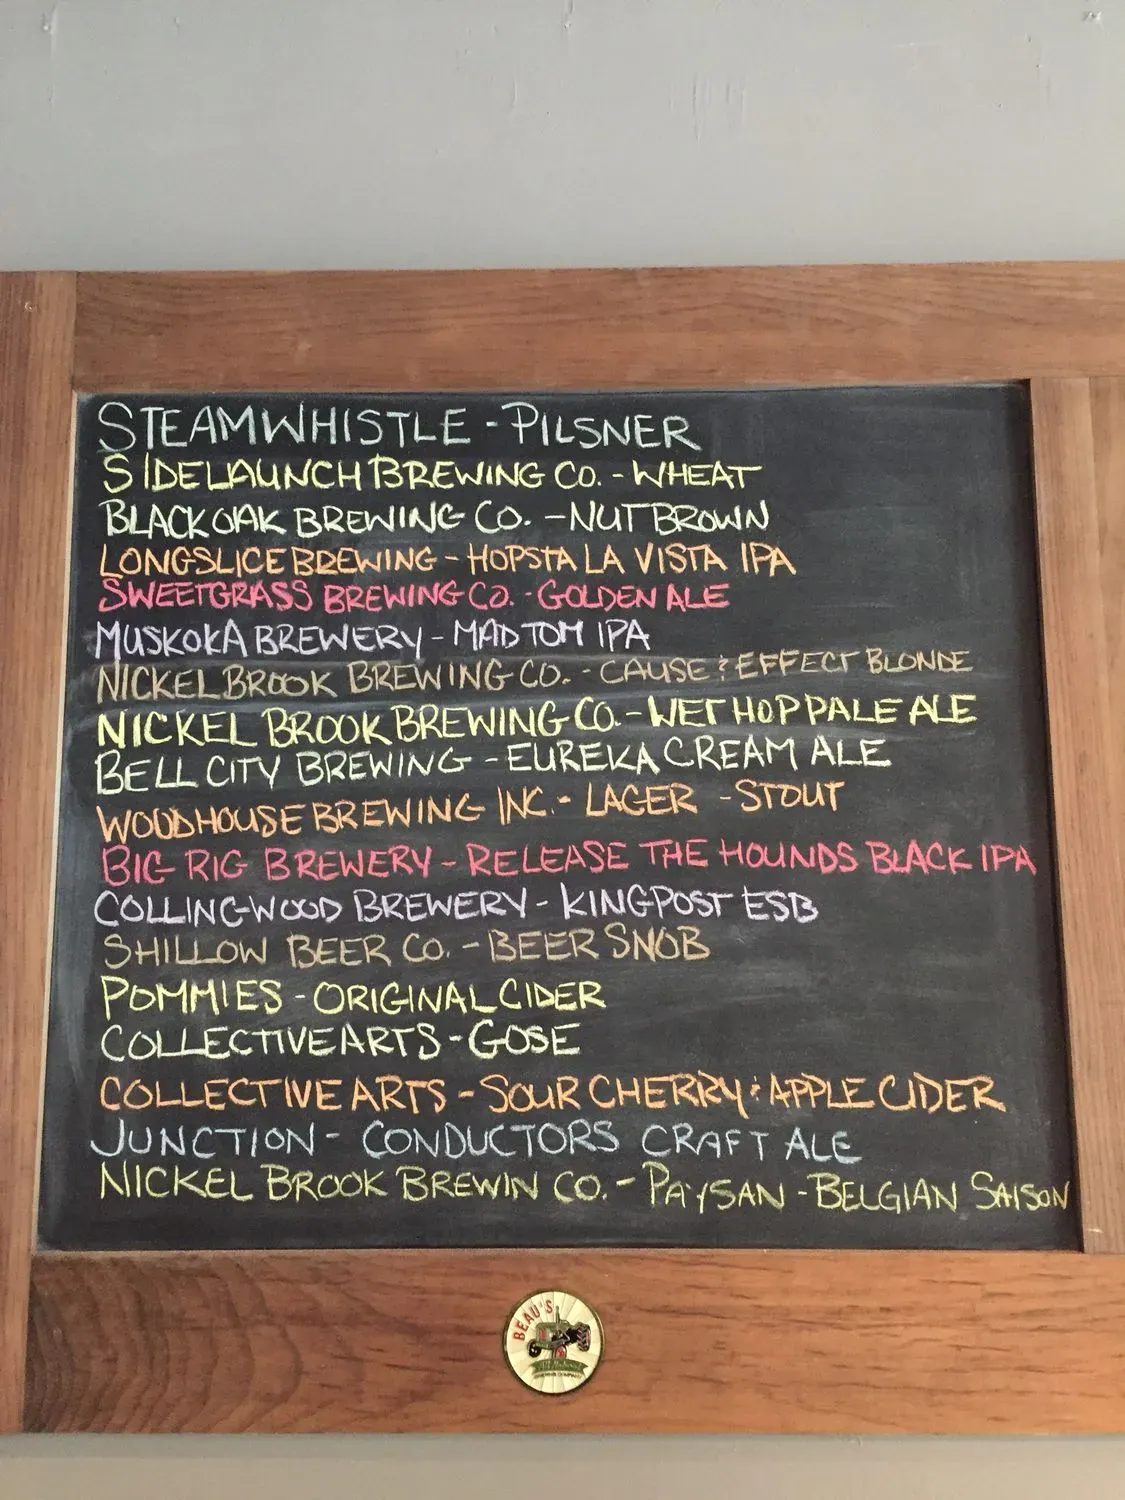 STEAMWHISTLE - PILSNER
SIDELAUNCH BREWING CO. - WHEAT
BLACK OAK BREWING CO. - NUT BROWN
LONGSLICE BREWING - HOPSTA LA VISTA IPA
SWEETGRASS BREWING CO. - GOLDEN ALE
MUSKOKA BREWERY - MAD TOM IPA
NICKEL BROOK BREWING CO. - CAUSE & EFFECT BLONDE
NICKEL BROOK BREWING CO. - WET HOP PALE ALE
BELL CITY BREWING - EUREKA CREAM ALE
WOODHOUSE BREWING INC. - LAGER - STOUT
BIG RIG BREWERY - RELEASE THE HOUNDS BLACK IPA
COLLINGWOOD BREWERY - KINGPOST ESB
SHILLOW BEER CO. - BEER SNOB
POMMIES - ORIGINAL CIDER
COLLECTIVE ARTS - GOSE
COLLECTIVE ARTS - SOUR CHERRY & APPLE CIDER
JUNCTION - CONDUCTORS CRAFT ALE
NICKEL BROOK BREWIN CO. - PAYSAN - BELGIAN SAISON
BEAU'S